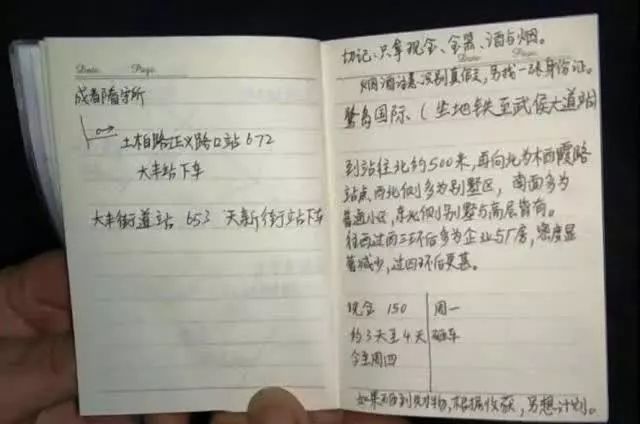 Date: Page:
成都看守所
土柏路正义路口站 672
大丰站下车
大丰街道站 653 天新街站下车
切记:只拿现金、金器、酒与烟。
Date: Page:
烟酒注意识别真假,另找一张身份证。
鹭岛国际、(坐地铁至武侯大道站)
到站往北约500米,再向北为木西霞路
站点,西北侧多为别墅区,南面多为
普通小区,东北侧别墅与高层皆有。
往西过西三环后多为企业与厂房,密度显
著减少,过四环后更甚。
现金 150 周一
约3天至4天 砸车
今至周四
如果不得到财物,根据收获,另想计划。